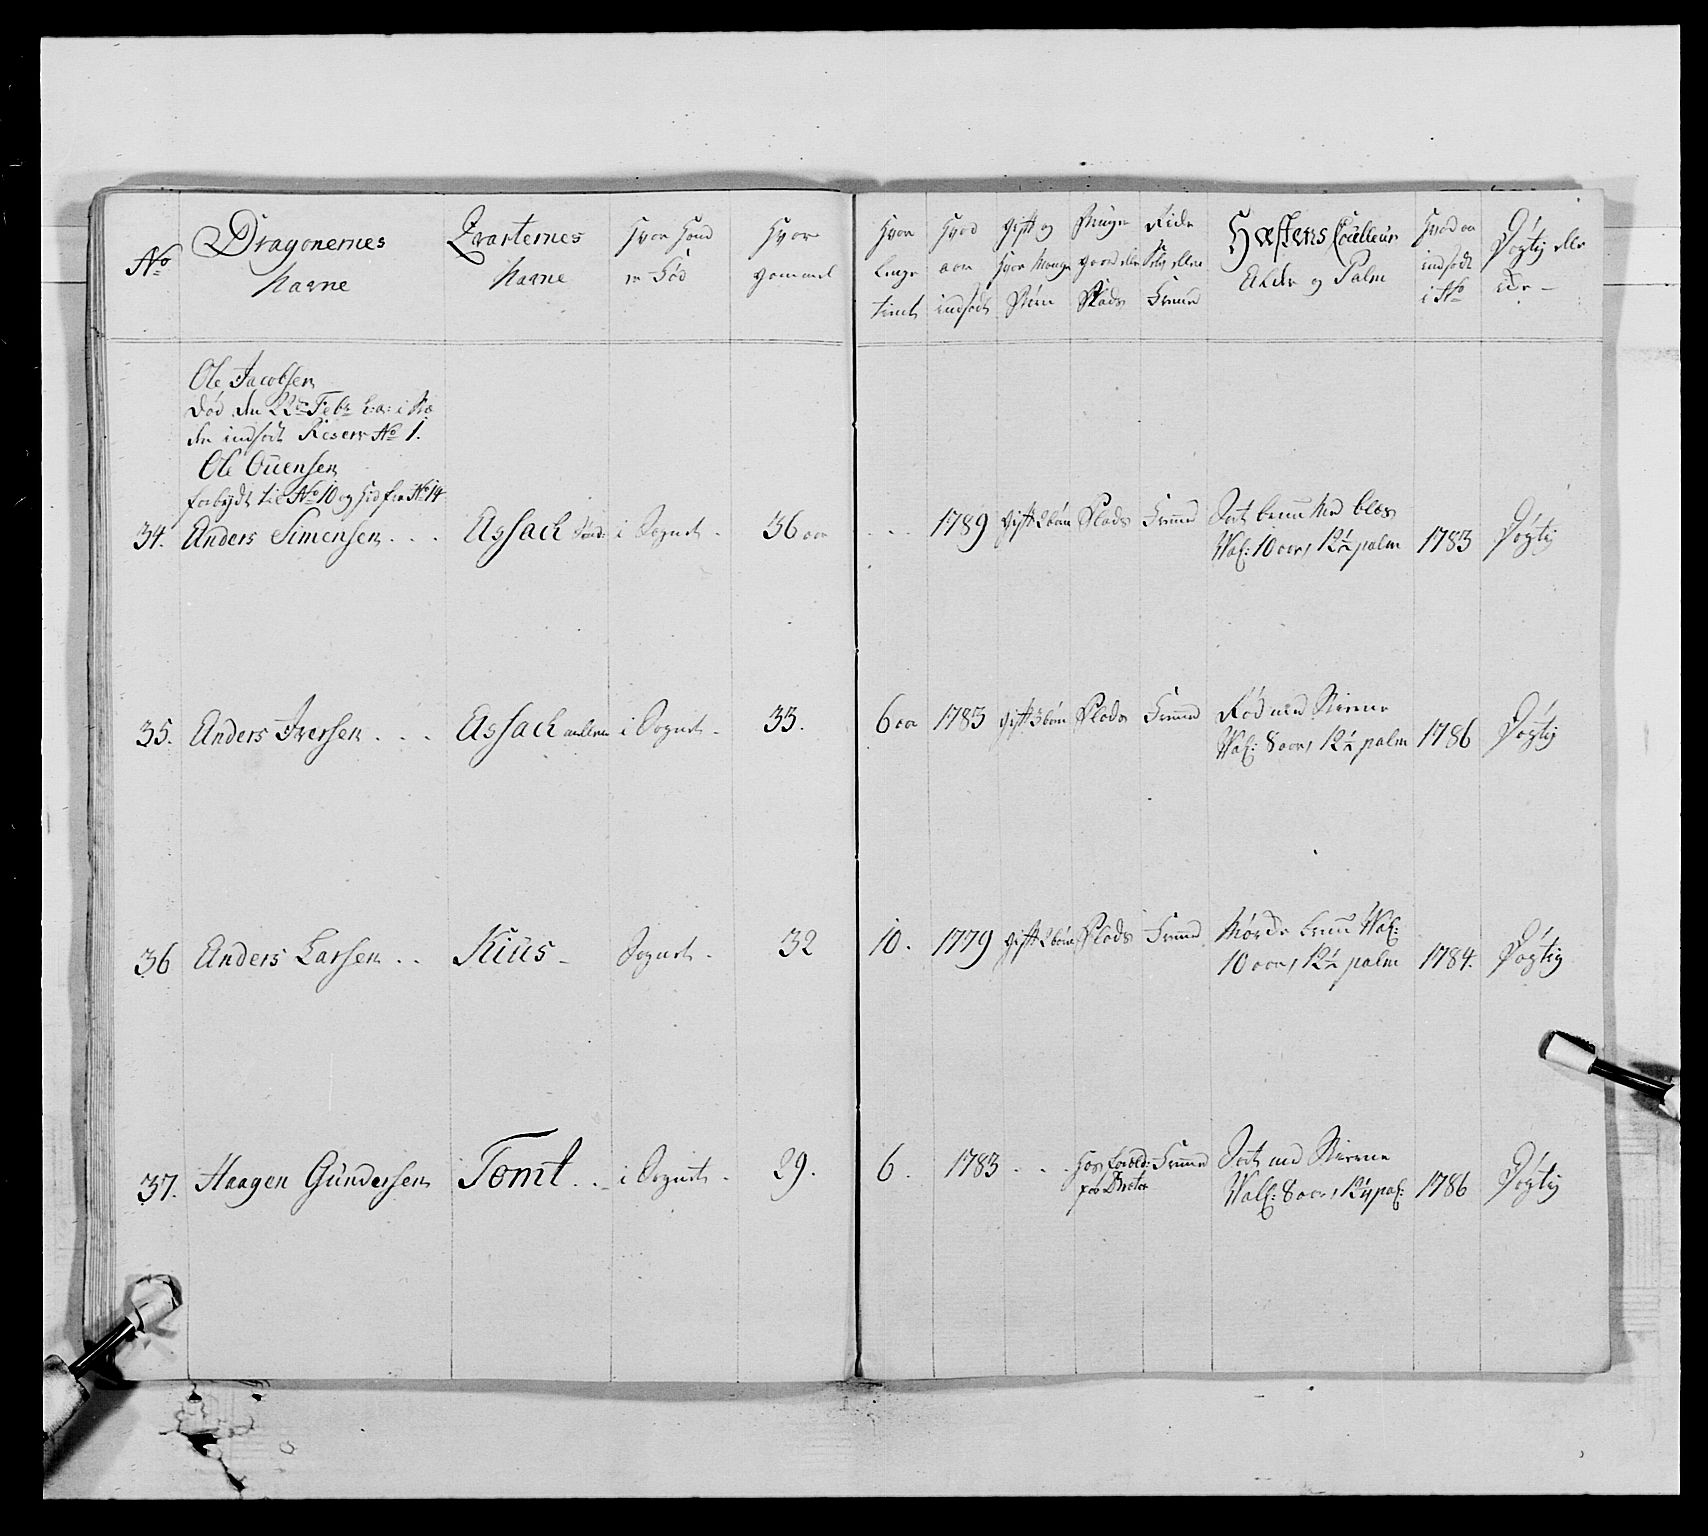 No
Dragonernes
Navne
Qvarternes
Navne
Hvor hand
er Fød
Hvor
gammel
Hvor
Længe
tient
Hvad
aar
indsadt
Gift og
Hvor Mange
Børn
Bruger
gaard eller
Plads
Hæstens Couleur
Alder og Palm
Hvad aar
indsadt
i No
Dygtig eller
Ole Jacobsen
Død den 22de Febr
der indsadt Reserv No 1.
Ole Ouensen
forbydt til No 10 og hid fra No 14
34. Anders Simensen . . . Assach i Sognet . 36 aar . . . 1789 Gift 2 børn Plads
Wal: 10 aar, 12½ palm 1783 Dygtig
35. Anders Iversen . . . Assach mellem i Sognet . 33. 6 aar 1783 gift 3 børn Plads Rød med Stierne
Wal: 8 aar, 12½ palm 1786 Dygtig
36 Anders Larsen . . Kius - Sognet . 32 10. 1779 gift 2 børn Plads Mørk bruun Wal:
10 aar, 12½ palm 1784. Dygtig
37. Haagen Gundersen Tomt . . i Sognet . 29. 6. 1783 . . . hos Foræld: Sort med Stierne
Wal: 8 aar, 12¼ pal: 1786 Dygtig